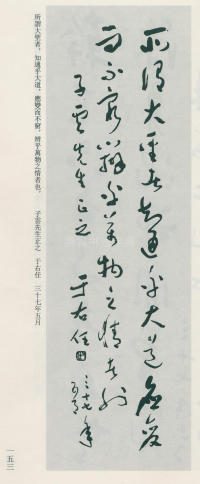 所謂大聖者知通乎大道應變
而不窮辨乎萬物之情者也
子雲先生正之
于右任
三十七年
五月
所謂大聖者，知通乎大道，應變而不窮，辨乎萬物之情者也。　子雲先生正之　于右任　三十七年五月
一五三